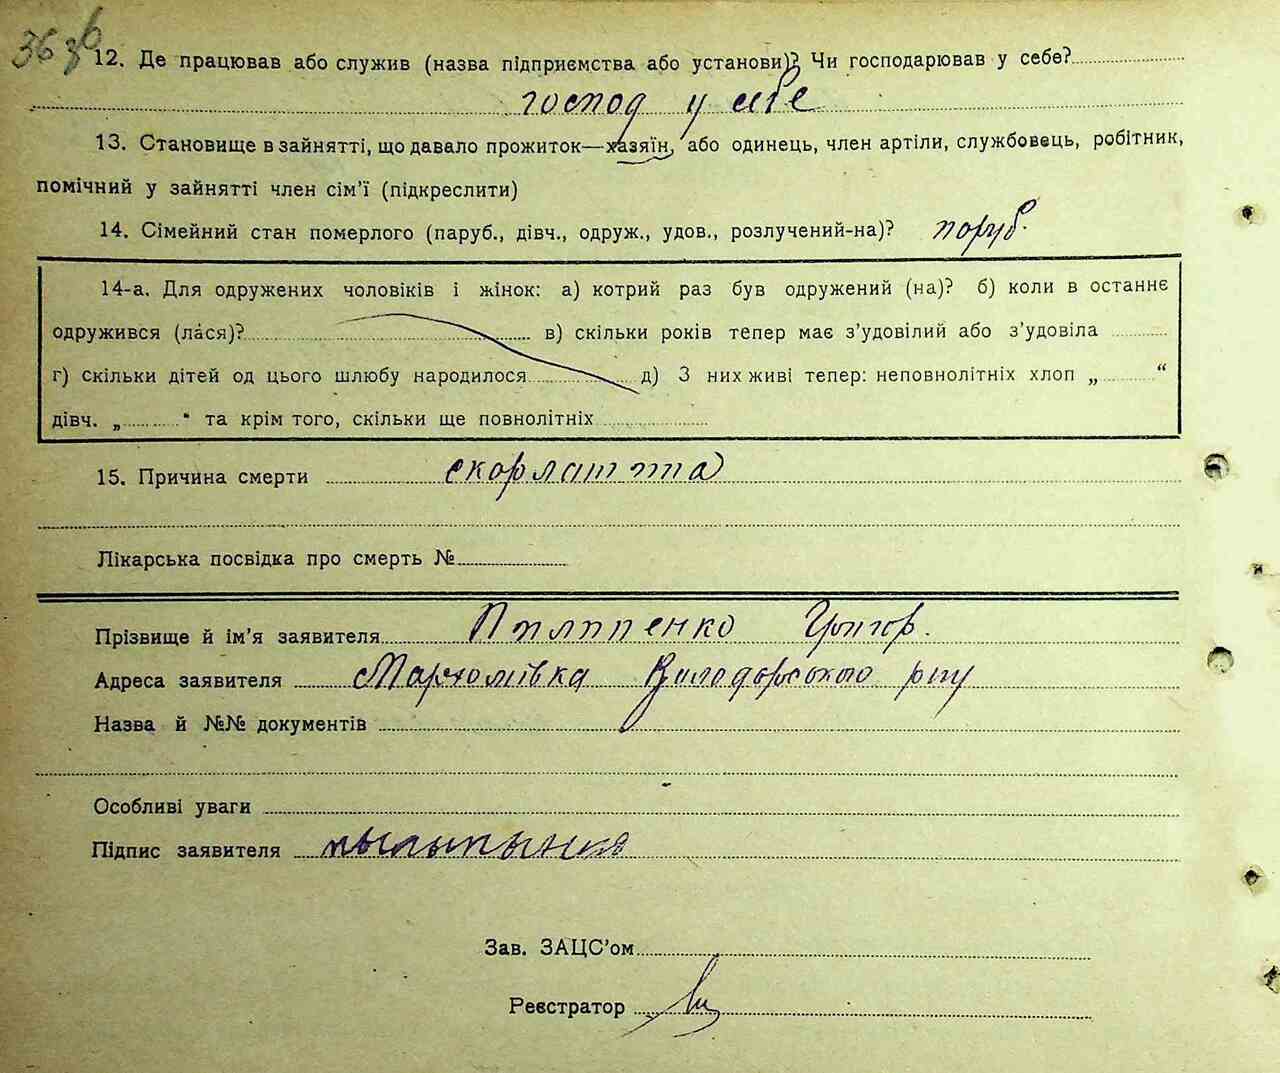 36 зв
12. Де працював або служив (назва підприємства або установи)? Чи господарював у себе?
господ у себе
13. Становище в зайнятті, що давало прожиток—хазяїн, або одинець, член артіли, службовець, робітник,
помічний у зайнятті член сім'ї (підкреслити)
14. Сімейний стан померлого (паруб., дівч., одруж., удов., розлучений-на)? поруб.
14-а. Для одружених чоловіків і жінок: а) котрий раз був одружений (на)? б) коли в останнє
одружився (лáся)? в) скільки років тепер має з'удовілий або з'удовіла
г) скільки дітей од цього шлюбу народилося д) З них живі тепер: неповнолітніх хлоп „ “
дівч. „ “ та крім того, скільки ще повнолітніх
15. Причина смерти скорлатта
Лікарська посвідка про смерть №
Прізвище й ім'я заявителя Пилипенко Григор.
Адреса заявителя Мармоліївка Володарського р-ну
Назва й №№ документів
Особливі уваги
Підпис заявителя пылыпынко
Зав. ЗАЦС'ом
Реєстратор